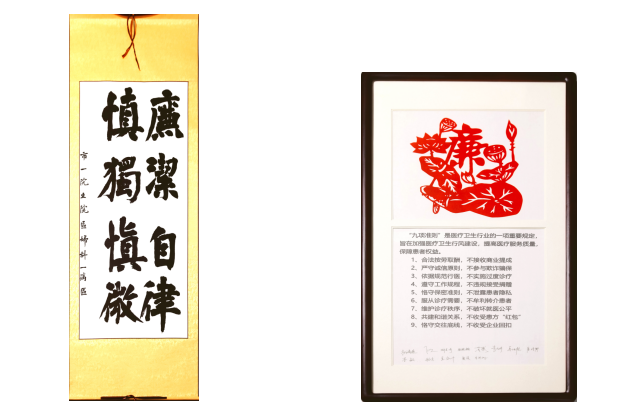 廉潔自律
慎獨慎微
市一院主院區婦科一病區
廉
“九项准则”是医疗卫生行业的一项重要规定，
旨在加强医疗卫生行风建设，提高医疗服务质量，
保障患者权益。
1、合法按劳取酬，不接收商业提成
2、严守诚信原则，不参与欺诈骗保
3、依据规范行医，不实施过度诊疗
4、遵守工作规程，不违规接受捐赠
5、恪守保密准则，不泄露患者隐私
6、服从诊疗需要，不牟利转介患者
7、维护诊疗秩序，不破坏就医公平
8、共建和谐关系，不收受患方“红包”
9、恪守交往底线，不收受企业回扣